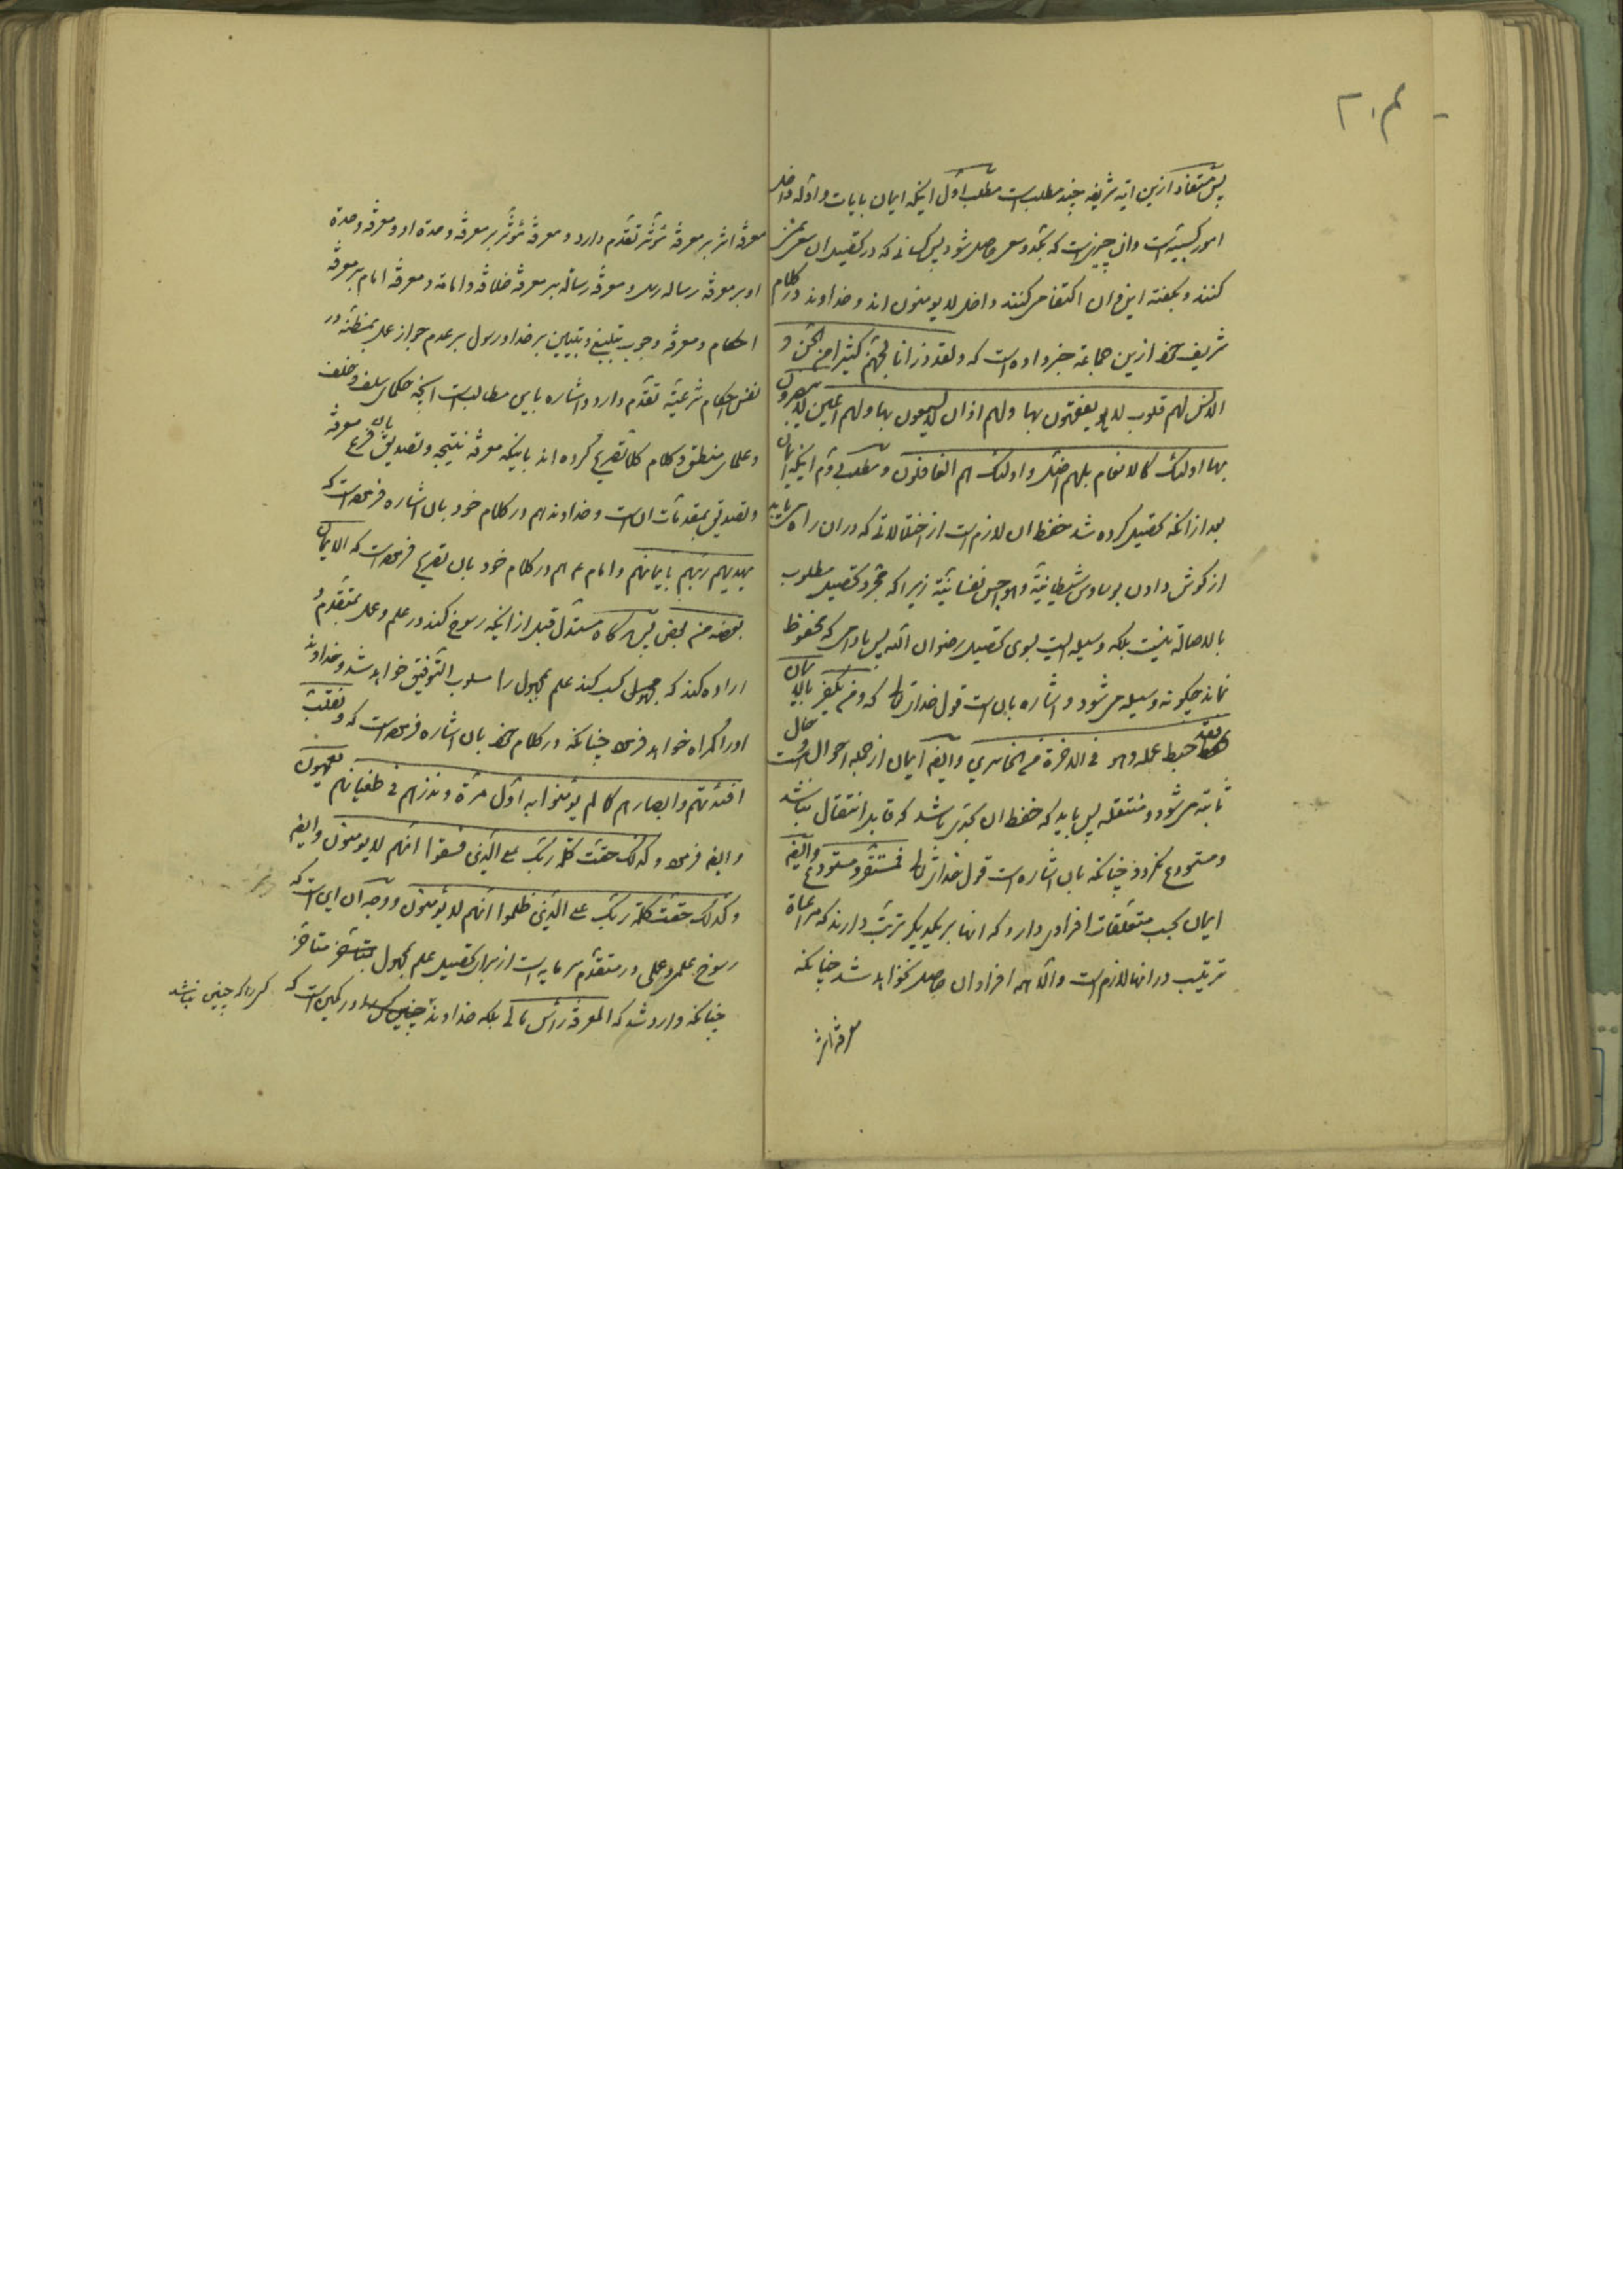 ۲۰۴
پس مستفاد ازین ایه شریفه چند مطلب است مطلب اوّل اینکه ایمان بایات و ادلّه داخل
امور کسبیّه است وان چیزیست که بجدّ و سعی حاصل شود پس کسانی که در تحصیل ان سعی نمی
کنند و بگفته این و ان اکتفا می کنند داخل لا یومنون اند و خداوند در کلام
شریف خود ازین جماعة خبر داده است که و لقد ذرانا لجهنّم کثیرا من الجنّ و
الانس لهم قلوب لا یفقهون بها و لهم اذان لا یسمعون بها و لهم اعین لا یبصرون
بها اولئک کالانعام بل هم اضلّ و اولئک هم الغافلون و مطلب دوّم اینکه ایمان
بعد از انکه تحصیل کرده شد حفظ ان لازم است از اختلالاتی که در ان راه می یابد
از گوش دادن بوساوس شیطانیّة و هواجس نفسانیّة زیرا که مجرّد تحصیل مطلوب
بالاصالة نیست بلکه وسیله ایست بسوی تحصیل رضوان الله پس مادامی که محفوظ
نماند چگونه وسیله می شود و اشاره بان است قول خدایتعالی که و من یکفر بالایمان
فقد حبط عمله و هو فی الاخرة من الخاسرین و ایضا ایمان از جمله احوال است و حال
ثابته می شود و منتقله پس باید که حفظ ان بحدّی باشد که قابل انتقال نباشد
و مستودع نگردد چنانکه بان اشاره است قول خدایتعالی فمستقرّ و مستودع و ایضا
ایمان بحسب متعلّقات افرادی دارد که انها بر یکدیگر ترتّب دارند که مراعاة
ترتیب در انها لازم است و الّا همه افراد ان حاصل نخواهد شد چنانکه
معرفة اثر
معرفة اثر بر معرفة مؤثّر تقدّم دارد و معرفة مؤثّر بر معرفة وحدة او و معرفة وحدة
او بر معرفة رسالة رسل و معرفة رسالة بر معرفة خلافة و امامة و معرفة امام بر معرفة
احکام و معرفة وجوب تبلیغ و تبیین بر خدا و رسول بر عدم جواز عمل بمظنّة در
نفس احکام شرعیّة تقدّم دارد و اشاره باین مطالب است انچه حکمای سلف و خلف
و علمای منطق و کلام کلا تصریح کرده اند باینکه معرفة نتیجه و تصدیق بان فرع معرفة
و تصدیق بمقدّمات ان است و خداوند هم در کلام خود بان اشاره فرموده است که
یهدیهم ربّهم بایمانهم و امام ع هم در کلام خود بان تصریح فرموده است که الایمان
بعضه من بعض پس هرگاه مستدلّ قبل از اینکه رسوخ کند در علم و عمل بمتقدّم
اراده کند که کسب کند علم مجهول را مسلوب التّوفیق خواهد شد و خداوند
او را گمراه خواهد فرمود چنانکه در کلام خود بان اشاره فرموده است که و نقلّب
افئدتهم و ابصارهم کما لم یؤمنوا به اوّل مرّة و نذرهم فی طغیانهم یعمهون
و ایضا فرموده و کذلک حقّت کلمة ربّک علی الّذین فسقوا انّهم لا یومنون و ایضا
و کذلک حقّت کلمة ربّک علی الّذین ظلموا انّهم لا یؤمنون و وجه آن این است که
رسوخ علمی و عملی در متقدّم سرمایه است از برای تحصیل علم مجهول متاخّر
چنانکه وارد شد که المعرفة رأس مالی بلکه خداوند در کمین است که
کسی را که چنین نباشد